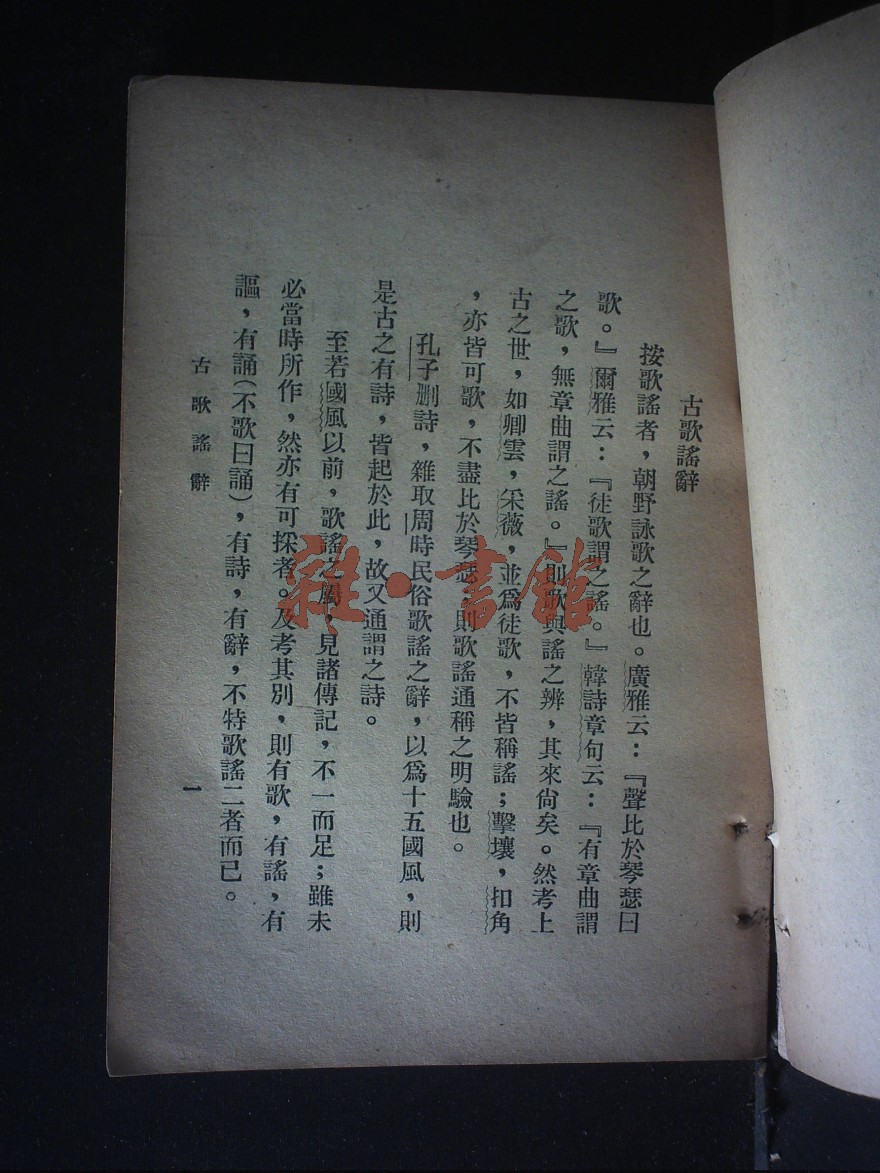 古歌謠辭
按歌謠者，朝野詠歌之辭也。廣雅云：『聲比於琴瑟曰
歌。』爾雅云：『徒歌謂之謠。』韓詩章句云：『有章曲謂
之歌，無章曲謂之謠。』則歌與謠之辨，其來尙矣。然考上
古之世，如卿雲，采薇，並爲徒歌，不皆稱謠；擊壤，扣角
，亦皆可歌，不盡比於琴瑟，則歌謠通稱之明驗也。
孔子删詩，雜取周時民俗歌謠之辭，以爲十五國風，則
是古之有詩，皆起於此，故又通謂之詩。
至若國風以前，歌謠之屬，見諸傳記，不一而足；雖未
必當時所作，然亦有可採者。及考其別，則有歌，有謠，有
謳，有誦（不歌曰誦），有詩，有辭，不特歌謠二者而已。
古歌謠辭
一
雜·書館